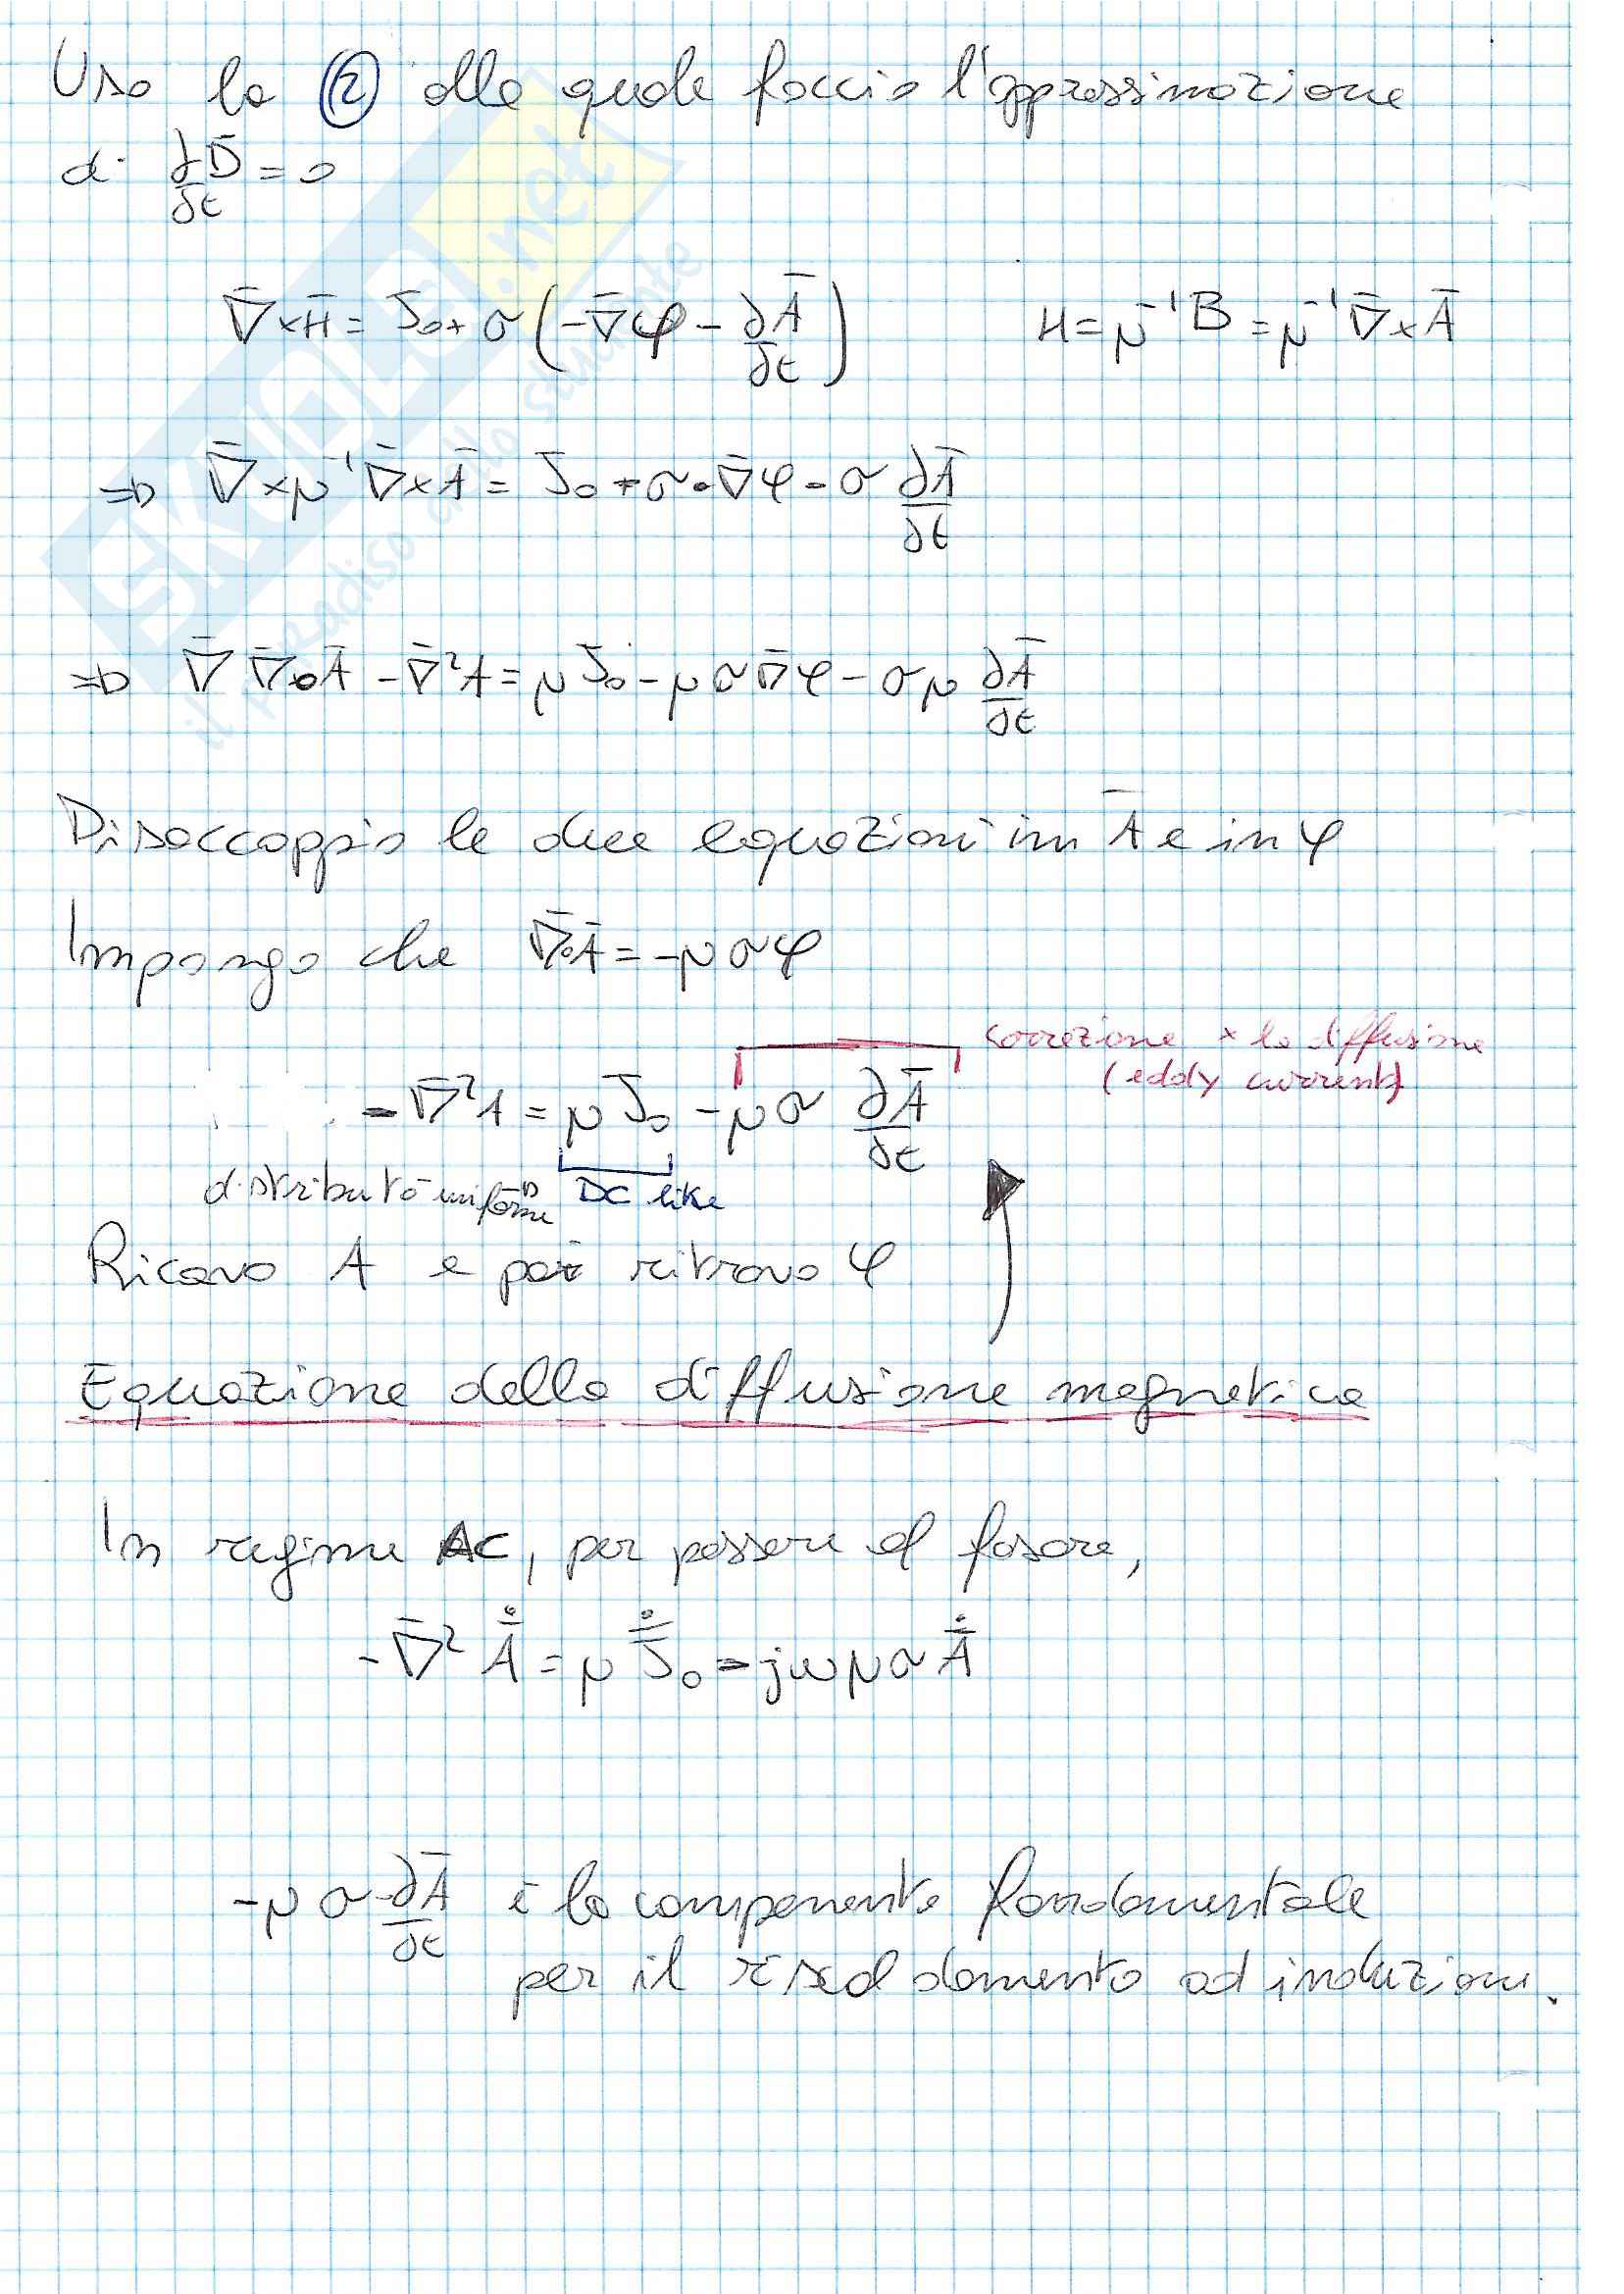 Uso la ② alla quale faccio l'approssimazione
di ∂D̄/∂t = 0
∇̄×H̄ = J̄₀ + σ(-∇̄φ - ∂Ā/∂t) H = μ⁻¹B̄ = μ⁻¹∇̄×Ā
⇒ ∇̄×μ⁻¹∇̄×Ā = J̄₀ + σ·∇̄φ - σ ∂Ā/∂t
⇒ ∇̄ ∇̄·Ā - ∇̄²A = μJ̄₀ - μσ∇̄φ - σμ ∂Ā/∂t
Disaccoppio le due equazioni in Ā e in φ
Impongo che ∇̄·Ā = -μσφ
correzione x la diffusione
(eddy currents)
-∇̄²A = μJ̄₀ - μσ ∂Ā/∂t
distributo uniforme DC like
Ricavo A e poi ritrovo φ
Equazione della diffusione magnetica
In regime AC, per passere al fasore,
-∇̄² Ā̇ = μ J̄̇₀ - jωμσĀ̇
-μσ ∂Ā/∂t è la componente fondamentale
per il riscaldamento ad induzione.
SKUOLA.net
il paradiso dello studente